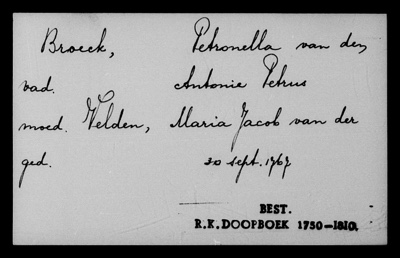 Broeck, Petronella van den
vad. Antonie Petrus
moed. Velden, Maria Jacob van der
ged. 30 sept. 1767
BEST.
R.K. DOOPBOEK 1750-1810.